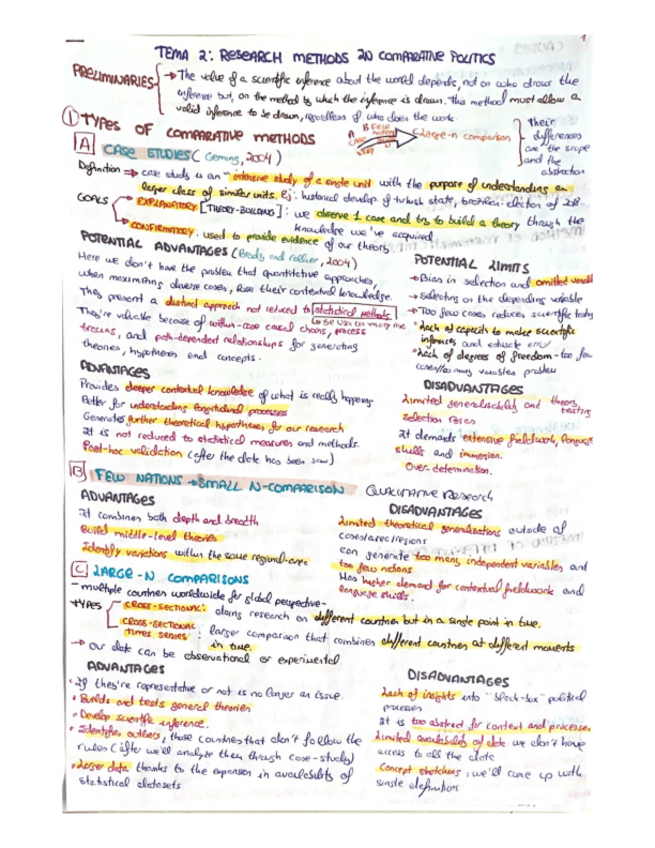 1
TEMA 2: RESEARCH METHODS IN COMPARATIVE POLITICS
PRELIMINARIES → The value of a scientific inference about the world depends, not on who draws the
inference but, on the method by which the inference is drawn. This method must allow a
valid inference to be drawn, regardless of who does the work
① TYPES OF COMPARATIVE METHODS
A B FEW C large-n comparison
CASE
their
differences
are the scope
and the
abstraction
A CASE STUDIES (Gerring, 2004)
Definition → case study is an "intensive study of a single unit with the purpose of understanding a
larger class of similar units. Ej: historical develop of turkish state, brazilian election of
GOALS
EXPLANATORY [THEORY-BUILDING]: we observe 1 case and try to build a theory through the
knowledge we've acquired
CONFIRMATORY: used to provide evidence of our theory
POTENTIAL ADVANTAGES (Brady and Collier, 2004)
Here we don't have the problem that quantitative approaches,
when maximizing diverse cases, lose their contextual knowledge.
They present a distinct approach not reduced to statistical methods
They're valuable because of within-case causal chains, process
tracing, and path-dependent relationships for generating
theories, hypotheses and concepts.
POTENTIAL LIMITS
→ Bias in selection and omitted
→ Selecting on the depending variable
→ Too few cases reduces scientific
"lack of capacity to make scientific
inferences and estimate error
"lack of degrees of freedom - too few
cases/too many variables problem
ADVANTAGES
Provides deeper contextual knowledge of what is really happening
Better for understanding longitudinal processes
Generates further theoretical hypotheses for our research
It is not reduced to statistical measures and methods.
Post-hoc validation (after the date has been saw)
DISADVANTAGES
Limited generalisability and theory
testing
Selection
It demands extensive fieldwork, language
skills and immersion.
Over-determination.
B FEW NATIONS → SMALL N-COMPARISON QUALITATIVE RESEARCH
ADVANTAGES
It combines both depth and breadth
Build middle-level theories
Identify variations within the same regional-area
DISADVANTAGES
Limited theoretical generalizations outside of
cases/area/regions
can generate too many independent variables and
too few nations
Has higher demand for contextual fieldwork and
language skills.
C LARGE-N COMPARISONS
- multiple countries worldwide for global perspective-
TYPES
CROSS-SECTIONAL: doing research on different countries but in a single point in time.
CROSS-SECTIONAL
TIMES SERIES: larger comparison that combines different countries at different moments
in time.
→ Our date can be observational or experimental.
ADVANTAGES
• If they're representative or not is no longer an issue.
• Builds and tests general theories
• Develop scientific inference.
• Identifies outliers, those countries that don't follow the
rules (after we'll analyze them through case-study)
• Larger data thanks to the expansion in availability of
statistical datasets.
DISADVANTAGES
Lack of insights into "black-box" political
processes
It is too abstract for context and processes
Limited availability of date we don't have
access to all the date
Concept stretching: we'll come up with
single definitions